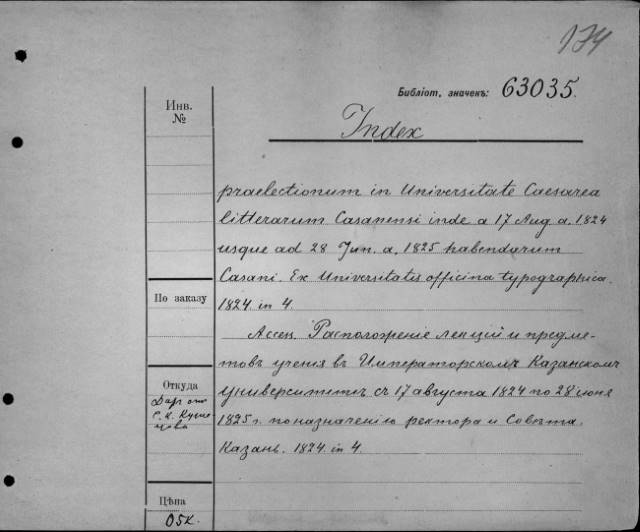 174
Библіот. значекъ: 63035.
Инв.
№
Index
praelectionum in Universitate Caesarea
litterarum Casanensi inde a 17 Aug a. 1824
usque ad 28 Jun. a. 1825 habendarum
Casani. Ex Universitatis officina typographica.
1824. in 4.
По заказу
Ассец. Расположеніе лекцій и предме-
товъ ученія въ Императорскомъ Казанскомъ
университетѣ съ 17 августа 1824 по 28 іюня
1825 г. по назначенію ректора и Совѣта.
Казань. 1824. in 4.
Откуда
Даръ отъ
С. К. Кузне-
цова
Цѣна
05к.